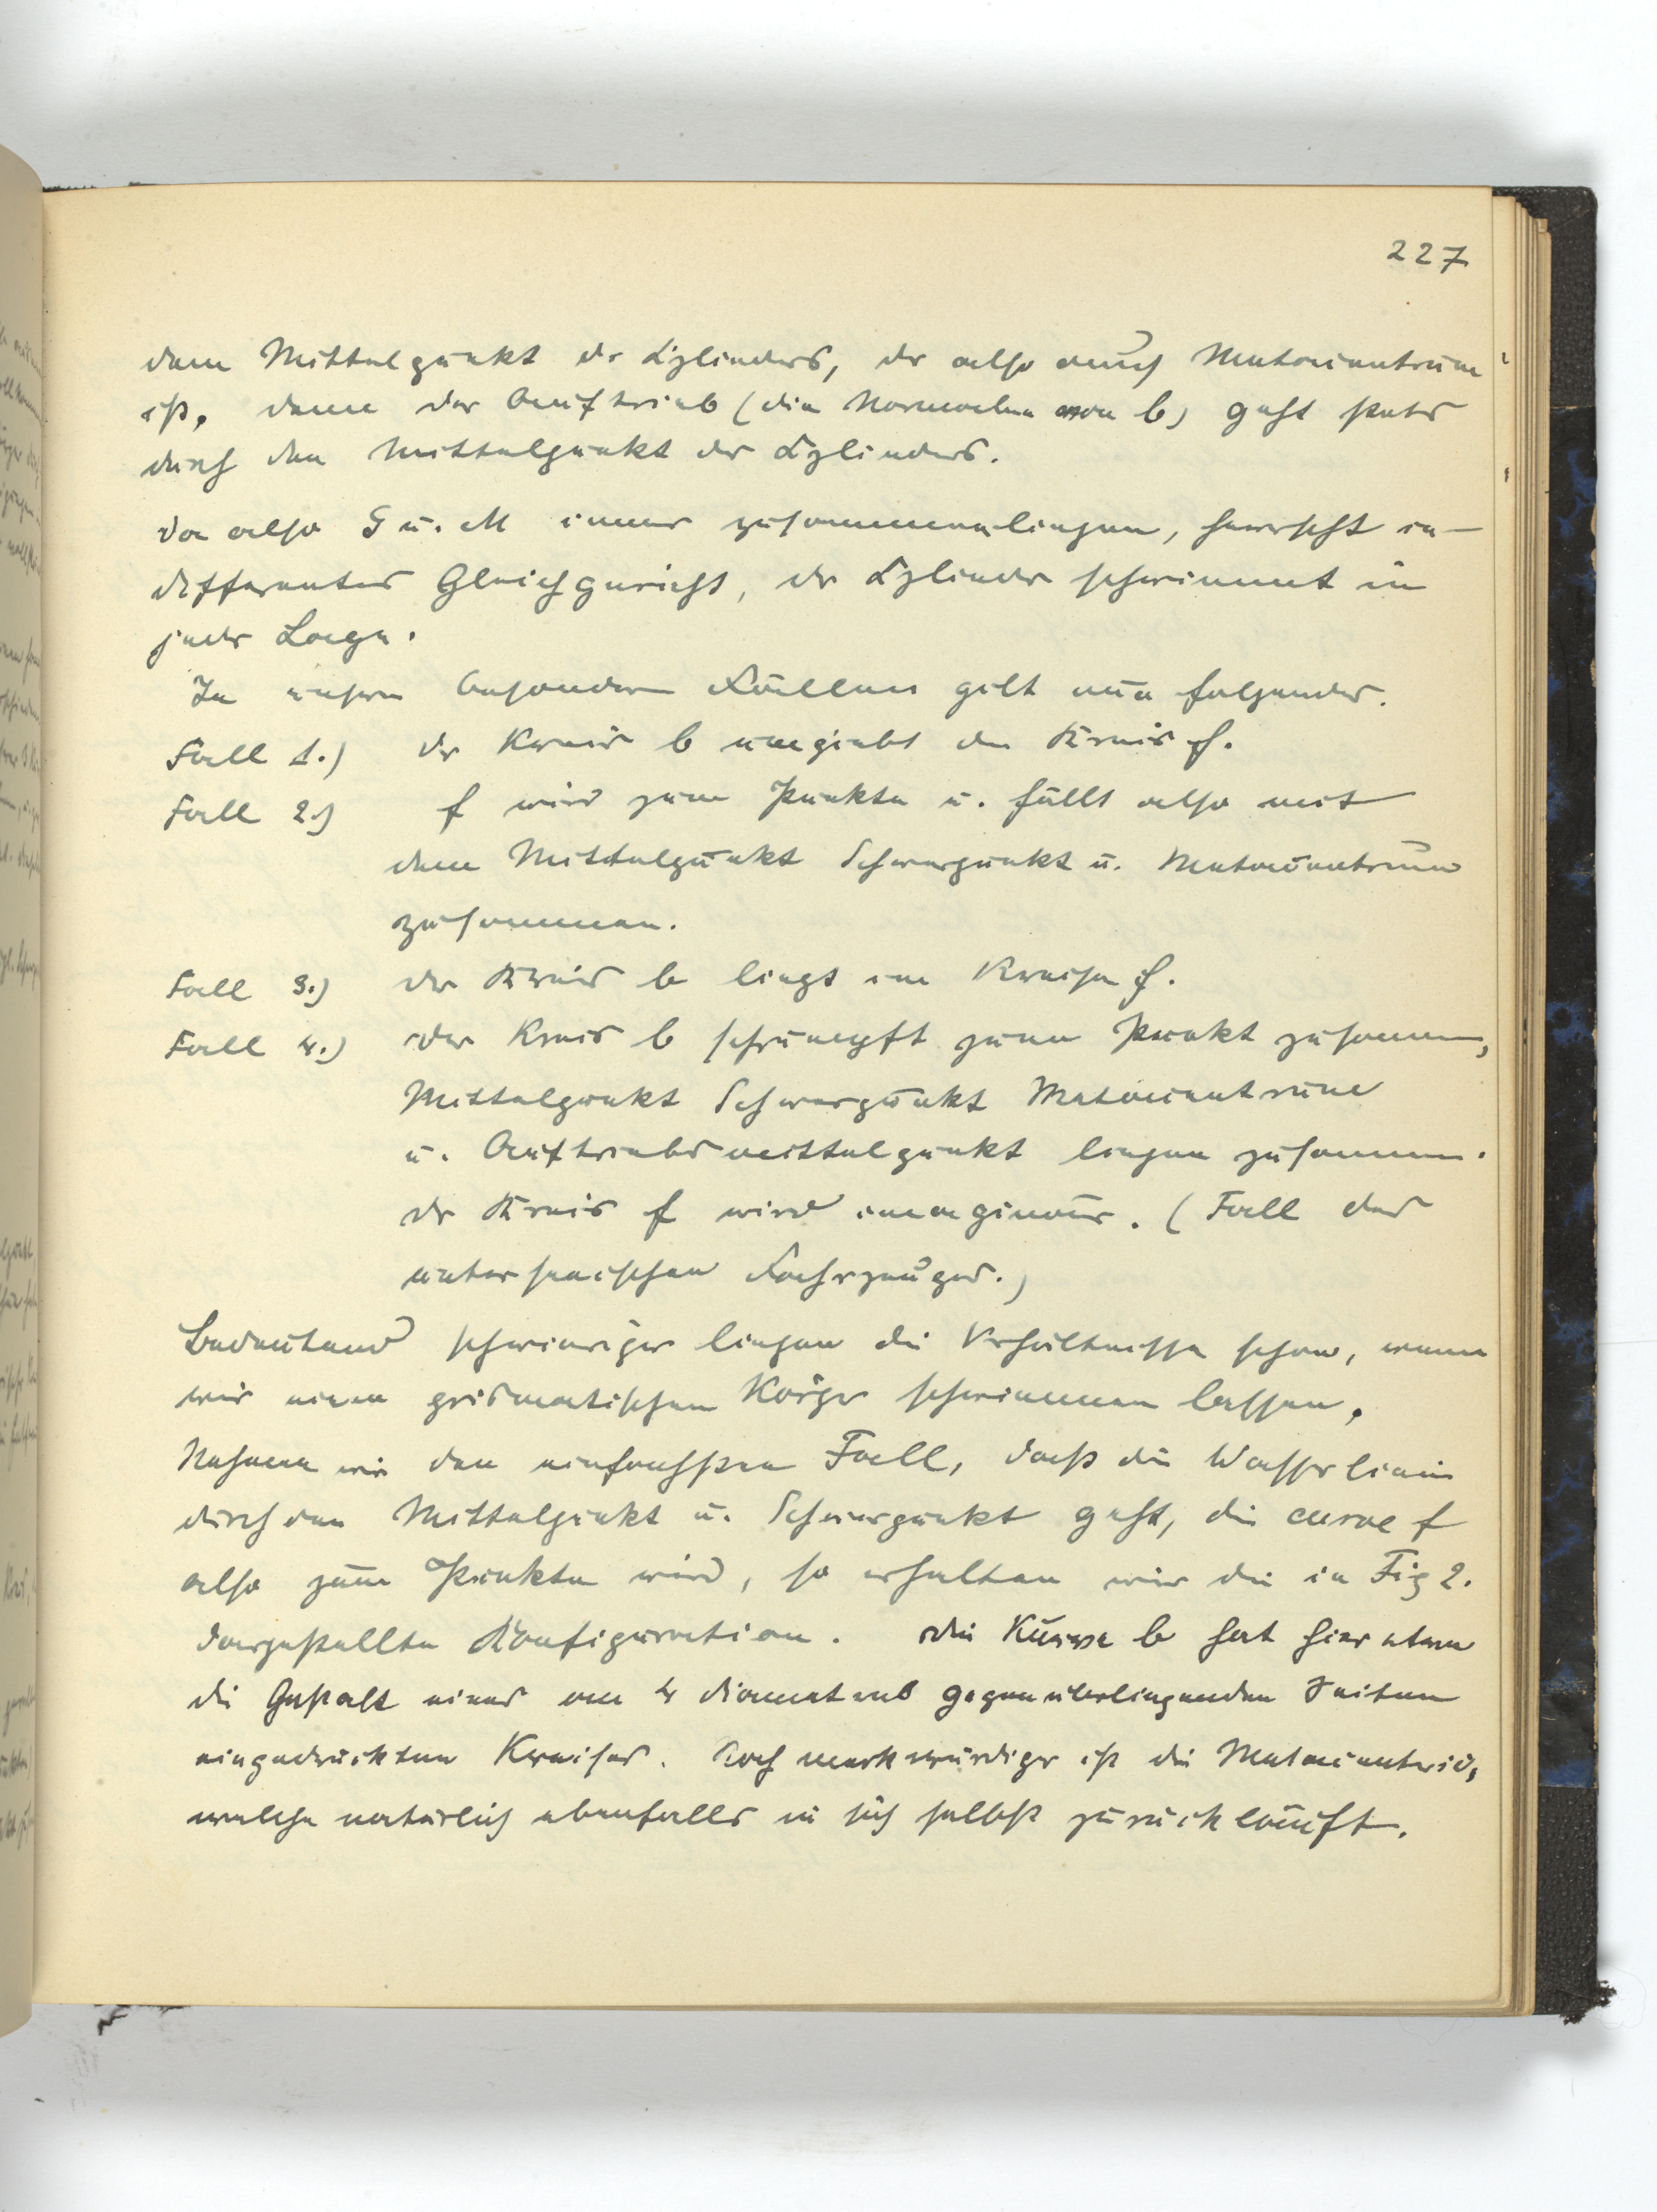 227
dem Mittelpunkt des Zylinders, der also auch Metacentrum
ist, denn der Auftrieb (die Normale von b) geht stets
durch den Mittelpunkt des Zylinders.
Da also S u. M immer zusammenliegen, herrscht in-
differentes Gleichgewicht, der Zylinder schwimmt in
jeder Lage.
In unseren besonderen Fällen gilt nun folgendes.
Fall 1.) der Kreis b umgiebt den Kreis f.
Fall 2.) f wird zum Punkte u. fällt also mit
dem Mittelpunkt Schwerpunkt u. Metacentrum
zusammen.
Fall 3.) der Kreis b liegt im Kreise f.
Fall 4.) der Kreis b schrumpft zum Punkt zusammen,
Mittelpunkt Schwerpunkt Metacentrum
u. Auftriebsmittelpunkt liegen zusammen.
der Kreis f wird imaginär. (Fall des
unterseeischen Fahrzeuges.)
Bedeutend schwieriger liegen die Verhältnisse schon, wenn
wir einen prismatischen Körper schwimmen lassen.
Nehmen wir den einfachsten Fall, daß die Wasserlinie
durch den Mittelpunkt u. Schwerpunkt geht, die curve f
also zum Punkte wird, so erhalten wir die in Fig 2.
dargestellte Konfiguration. Die Kurve b hat hier etwa
die Gestalt eines an 4 diametral gegenüberliegenden Seiten
eingedrückten Kreises. Noch merkwürdiger ist die Metacentrid,
welche natürlich ebenfalls in sich selbst zurückläuft.